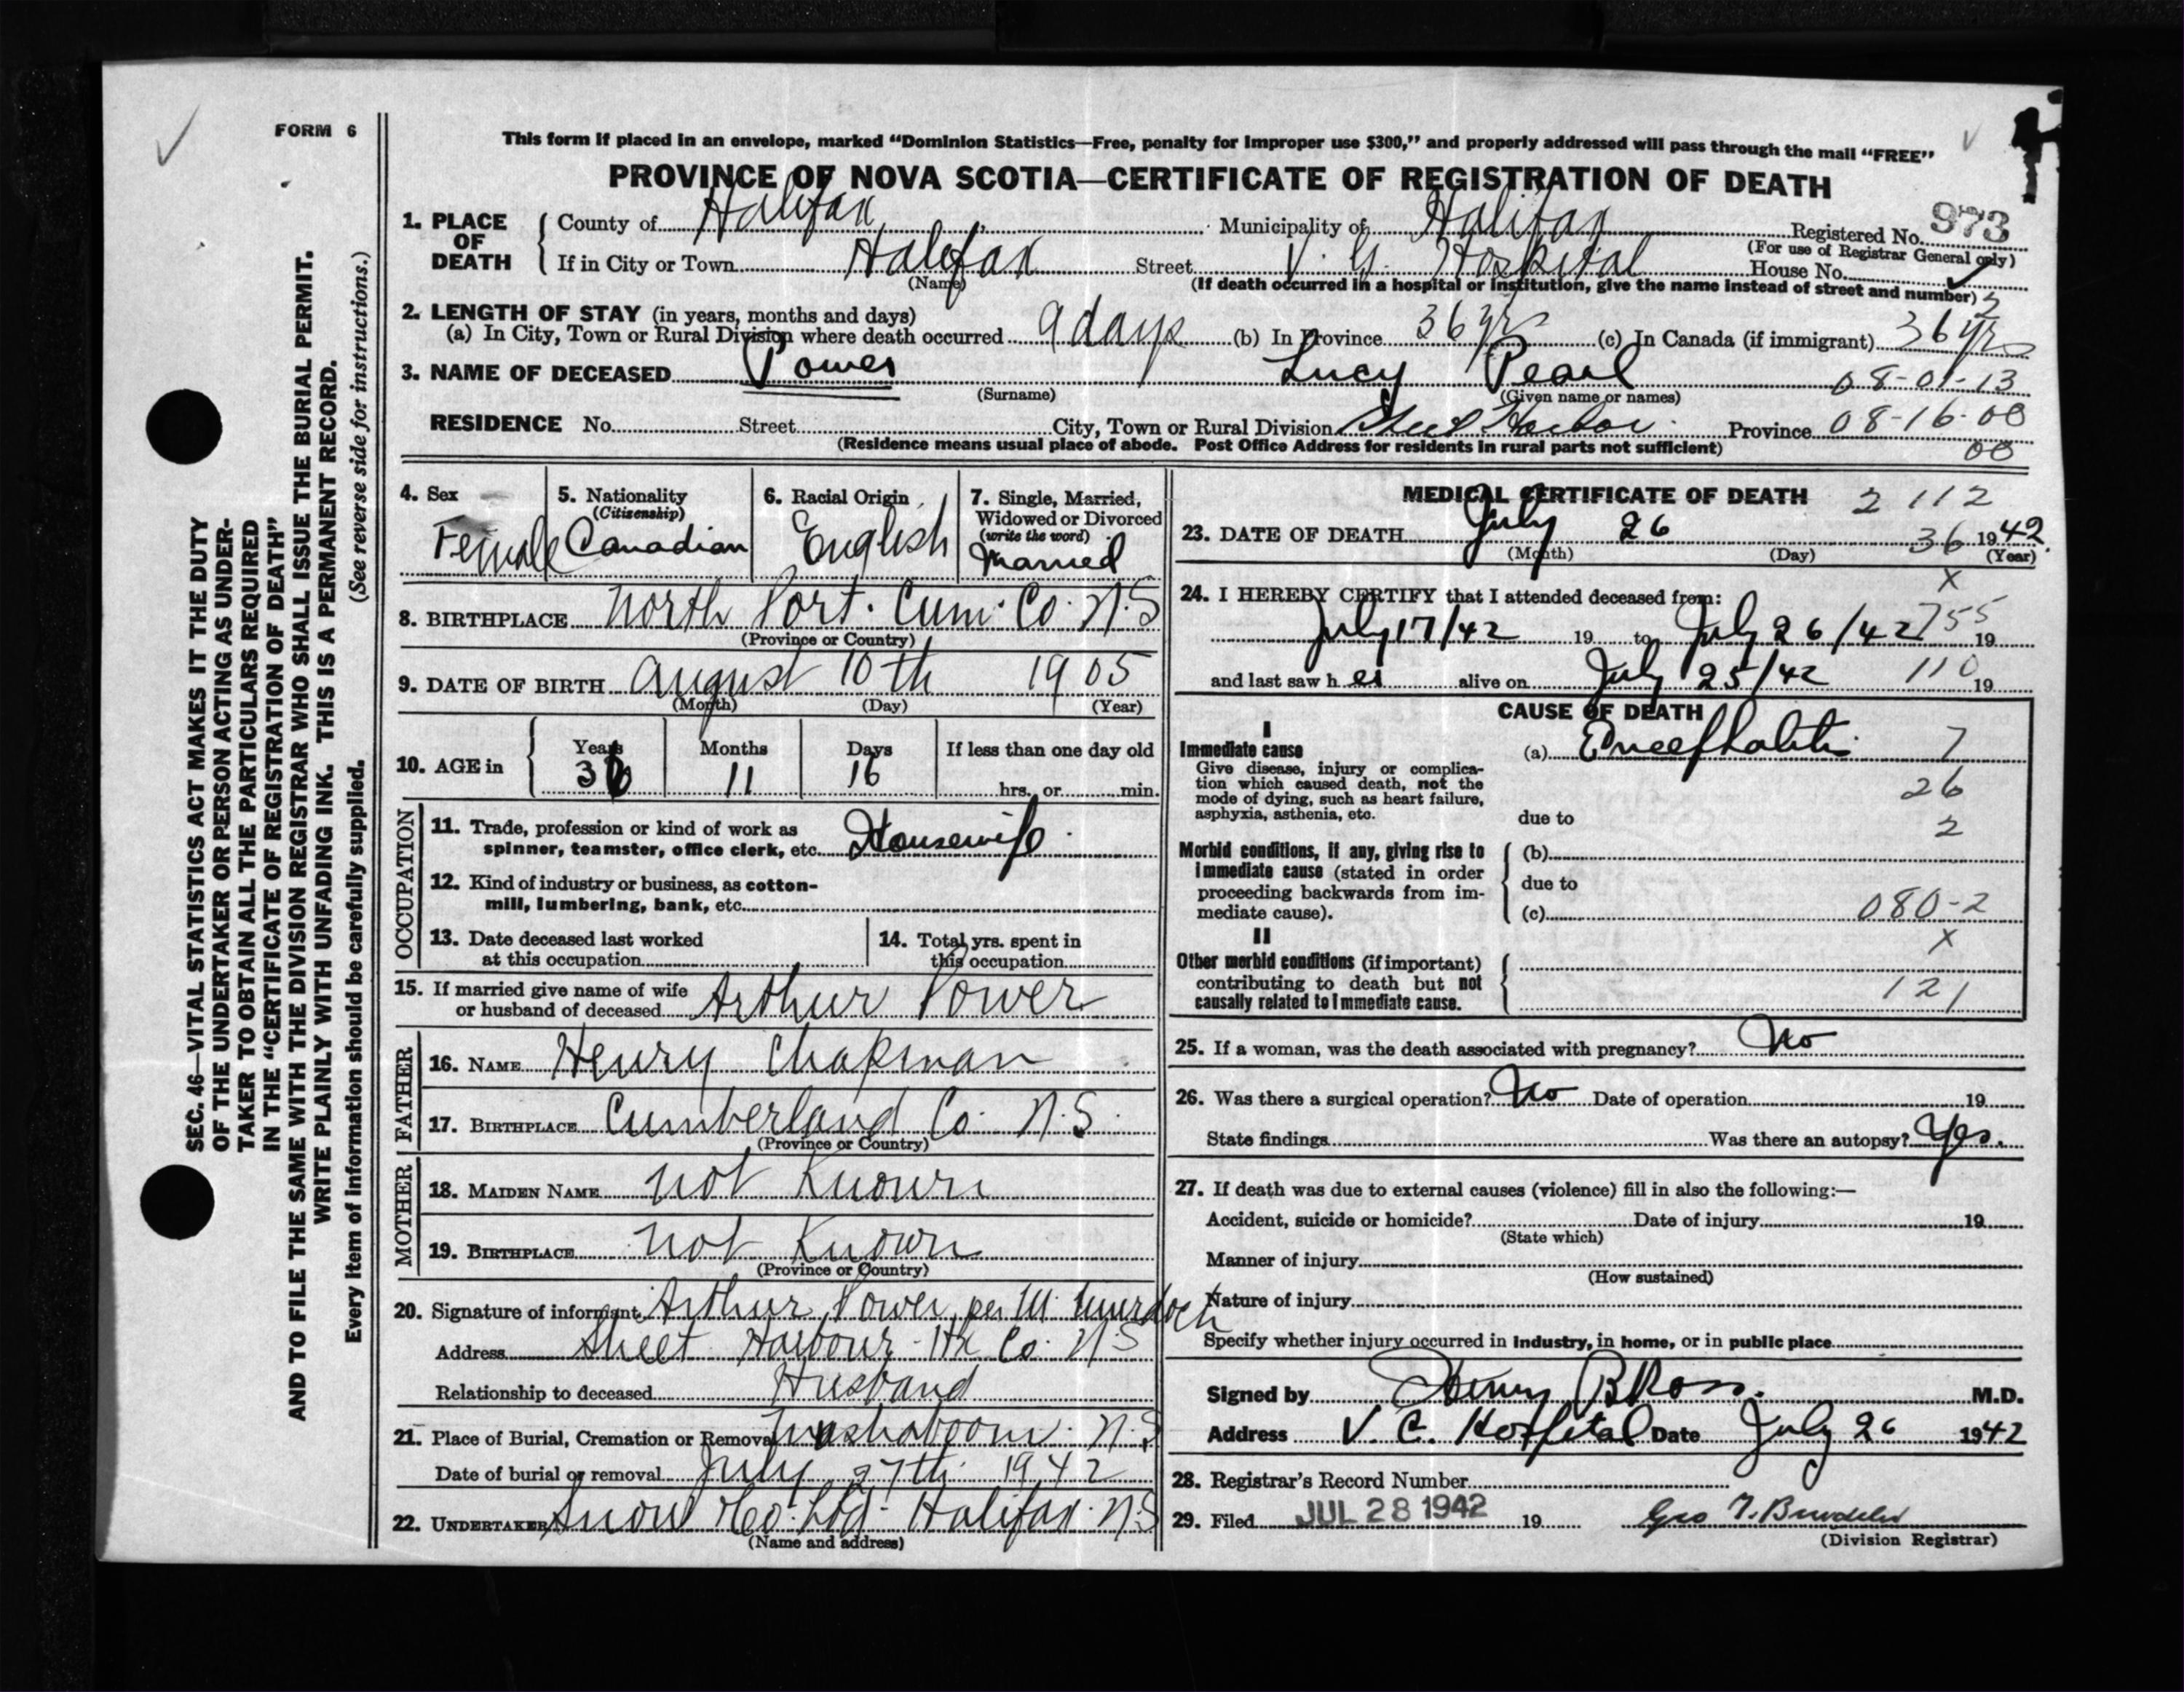 FORM 6
This form if placed in an envelope, marked "Dominion Statistics—Free, penalty for improper use $300," and properly addressed will pass through the mail "FREE"
PROVINCE OF NOVA SCOTIA—CERTIFICATE OF REGISTRATION OF DEATH
1. PLACE OF DEATH County of Halifax Municipality of Halifax Registered No. 973
(For use of Registrar General only)
If in City or Town Halifax Street V. G. Hospital House No.
(Name) (If death occurred in a hospital or institution, give the name instead of street and number) 2
2. LENGTH OF STAY (in years, months and days)
(a) In City, Town or Rural Division where death occurred 9 days (b) In Province 36 yrs (c) In Canada (if immigrant) 36 yrs
3. NAME OF DECEASED Power Lucy Pearl 08-01-13
(Surname) (Given name or names)
RESIDENCE No. Street City, Town or Rural Division Sheet Harbor Province 08-16-00
(Residence means usual place of abode. Post Office Address for residents in rural parts not sufficient) 00
4. Sex Female
5. Nationality (Citizenship) Canadian
6. Racial Origin English
7. Single, Married, Widowed or Divorced (write the word) Married
8. BIRTHPLACE North Port. Cum. Co. N.S
(Province or Country)
9. DATE OF BIRTH August 10th 1905
(Month) (Day) (Year)
10. AGE in Years 36 Months 11 Days 16 If less than one day old hrs. or min.
OCCUPATION
11. Trade, profession or kind of work as spinner, teamster, office clerk, etc. Housewife
12. Kind of industry or business, as cotton-mill, lumbering, bank, etc.
13. Date deceased last worked at this occupation
14. Total yrs. spent in this occupation
15. If married give name of wife or husband of deceased Arthur Power
FATHER
16. NAME Henry Chapman
17. BIRTHPLACE Cumberland Co. N.S.
(Province or Country)
MOTHER
18. MAIDEN NAME not Known
19. BIRTHPLACE not Known
(Province or Country)
20. Signature of informant Arthur Power per M. Murdoch
Address Sheet Harbour Hx Co. N.S
Relationship to deceased Husband
21. Place of Burial, Cremation or Removal Mushaboom. N.S
Date of burial or removal July 27th 1942
22. UNDERTAKER Snow & Co. Ltd. Halifax. N.S
(Name and address)
MEDICAL CERTIFICATE OF DEATH 2 112
23. DATE OF DEATH July 26 36 1942
(Month) (Day) (Year)
x
24. I HEREBY CERTIFY that I attended deceased from:
July 17/42 19 to July 26/42 755 19
and last saw her alive on July 25/42 110 19
CAUSE OF DEATH
I
Immediate cause (a) Encephalitis 7
Give disease, injury or complication which caused death, not the mode of dying, such as heart failure, asphyxia, asthenia, etc.
26
due to
2
Morbid conditions, if any, giving rise to immediate cause (stated in order proceeding backwards from immediate cause).
(b)
due to
(c) 080-2
II x
Other morbid conditions (if important) contributing to death but not causally related to immediate cause. 121
25. If a woman, was the death associated with pregnancy? No
26. Was there a surgical operation? No Date of operation 19
State findings Was there an autopsy? Yes.
27. If death was due to external causes (violence) fill in also the following:—
Accident, suicide or homicide? Date of injury 19
(State which)
Manner of injury
(How sustained)
Nature of injury
Specify whether injury occurred in industry, in home, or in public place
Signed by Henry B Ross. M.D.
Address V. G. Hospital Date July 26 1942
28. Registrar's Record Number
29. Filed JUL 28 1942 19
(Division Registrar)
SEC. 46—VITAL STATISTICS ACT MAKES IT THE DUTY
OF THE UNDERTAKER OR PERSON ACTING AS UNDER-
TAKER TO OBTAIN ALL THE PARTICULARS REQUIRED
IN THE "CERTIFICATE OF REGISTRATION OF DEATH"
AND TO FILE THE SAME WITH THE DIVISION REGISTRAR WHO SHALL ISSUE THE BURIAL PERMIT.
WRITE PLAINLY WITH UNFADING INK. THIS IS A PERMANENT RECORD.
Every item of information should be carefully supplied. (See reverse side for instructions.)